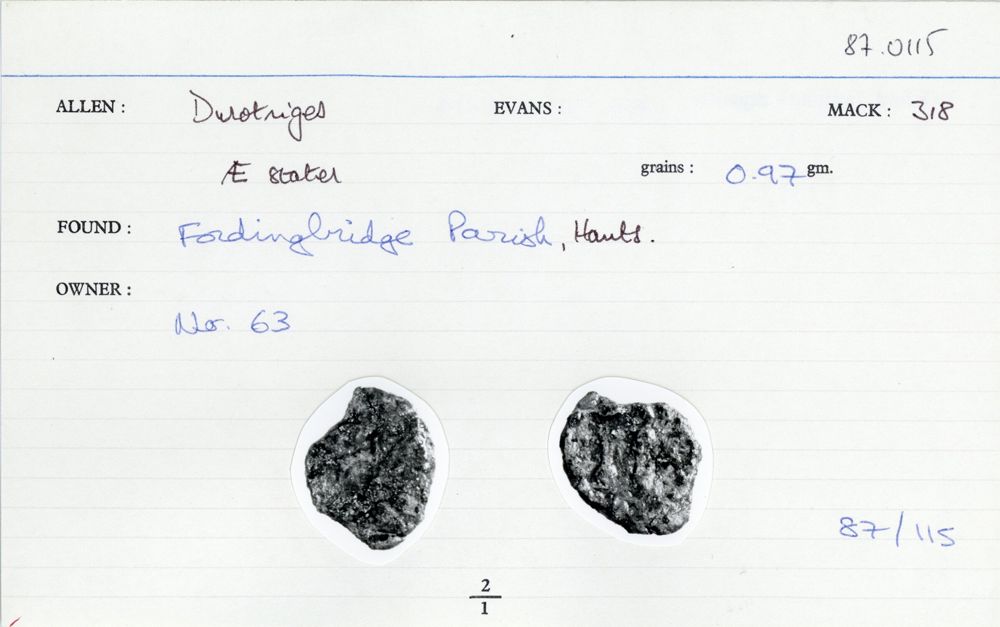 87.0115
ALLEN : Durotriges EVANS : MACK : 318
Æ stater grains : 0.97 gm.
FOUND : Fordingbridge Parish, Hants.
OWNER :
No. 63
87/115
2
1